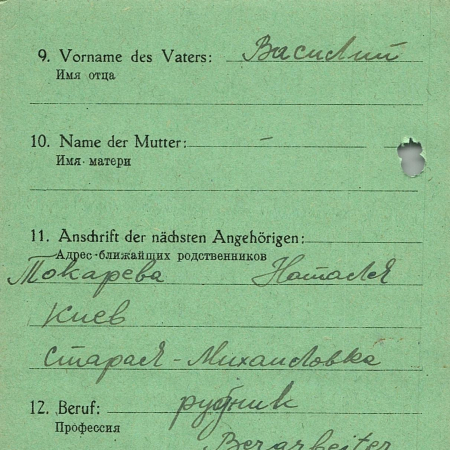 9. Vorname des Vaters: Василий
Имя отца
10. Name der Mutter: -
Имя матери
11. Anschrift der nächsten Angehörigen:
Адрес ближайших родственников
Токарева Наталя
Киев
Старая-Михайловка
12. Beruf: рудник
Профессия
Bergarbeiter